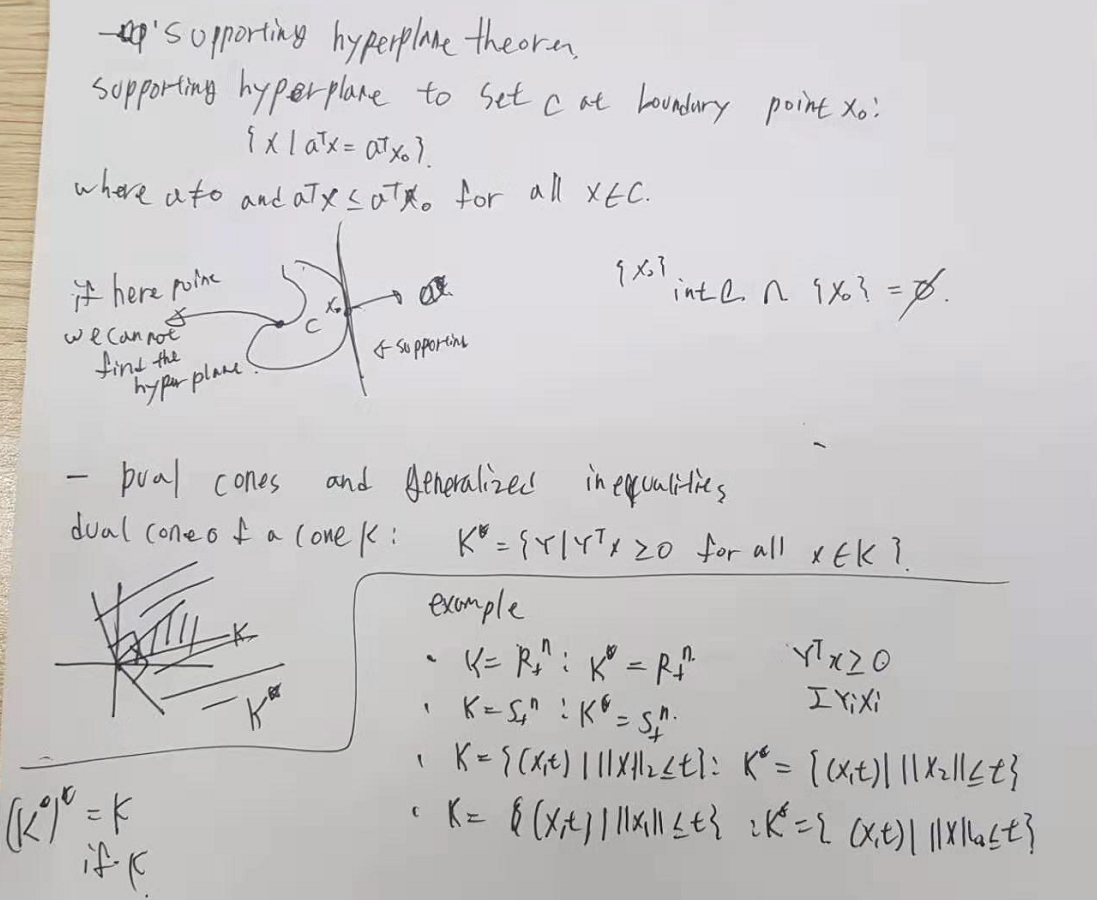 - 's supporting hyperplane theorem.
supporting hyperplane to set C at boundary point x₀:
{ x | aᵀx = aᵀx₀ }.
where a≠0 and aᵀx ≤ aᵀx₀ for all x∈C.
if here point
we cannot
find the
hyper plane.
x₀
C
a
← supporting
{x₀}
int C ∩ {x₀} = ∅.
- Dual cones and generalized inequalities
dual cones of a cone K: K* = {Y | Yᵀx ≥ 0 for all x ∈ K }.
K
K*
example
· K = R₊ⁿ : K* = R₊ⁿ.
Yᵀx ≥ 0
Σ YᵢXᵢ
· K = S₊ⁿ : K* = S₊ⁿ.
· K = {(x,t) | ||x||₂ ≤ t}: K* = {(x,t) | ||x₂|| ≤ t}
· K = {(x,t) | ||x₁|| ≤ t} : K* = { (x,t) | ||x|| ≤ t}
(K*)* = K
if K